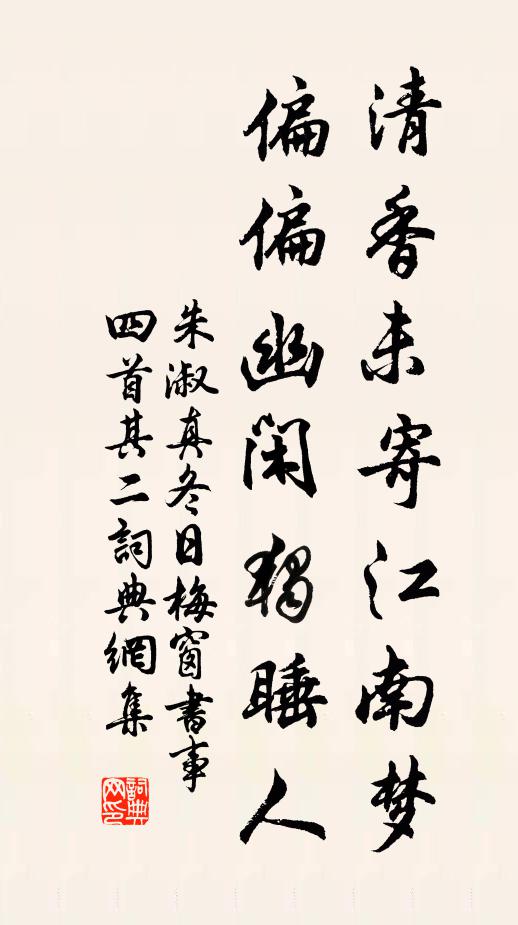 清香未寄江南梦
偏偏幽閑獨睡人
朱淑真冬日梅窗書事
四首其二詞典網集
詞典网印